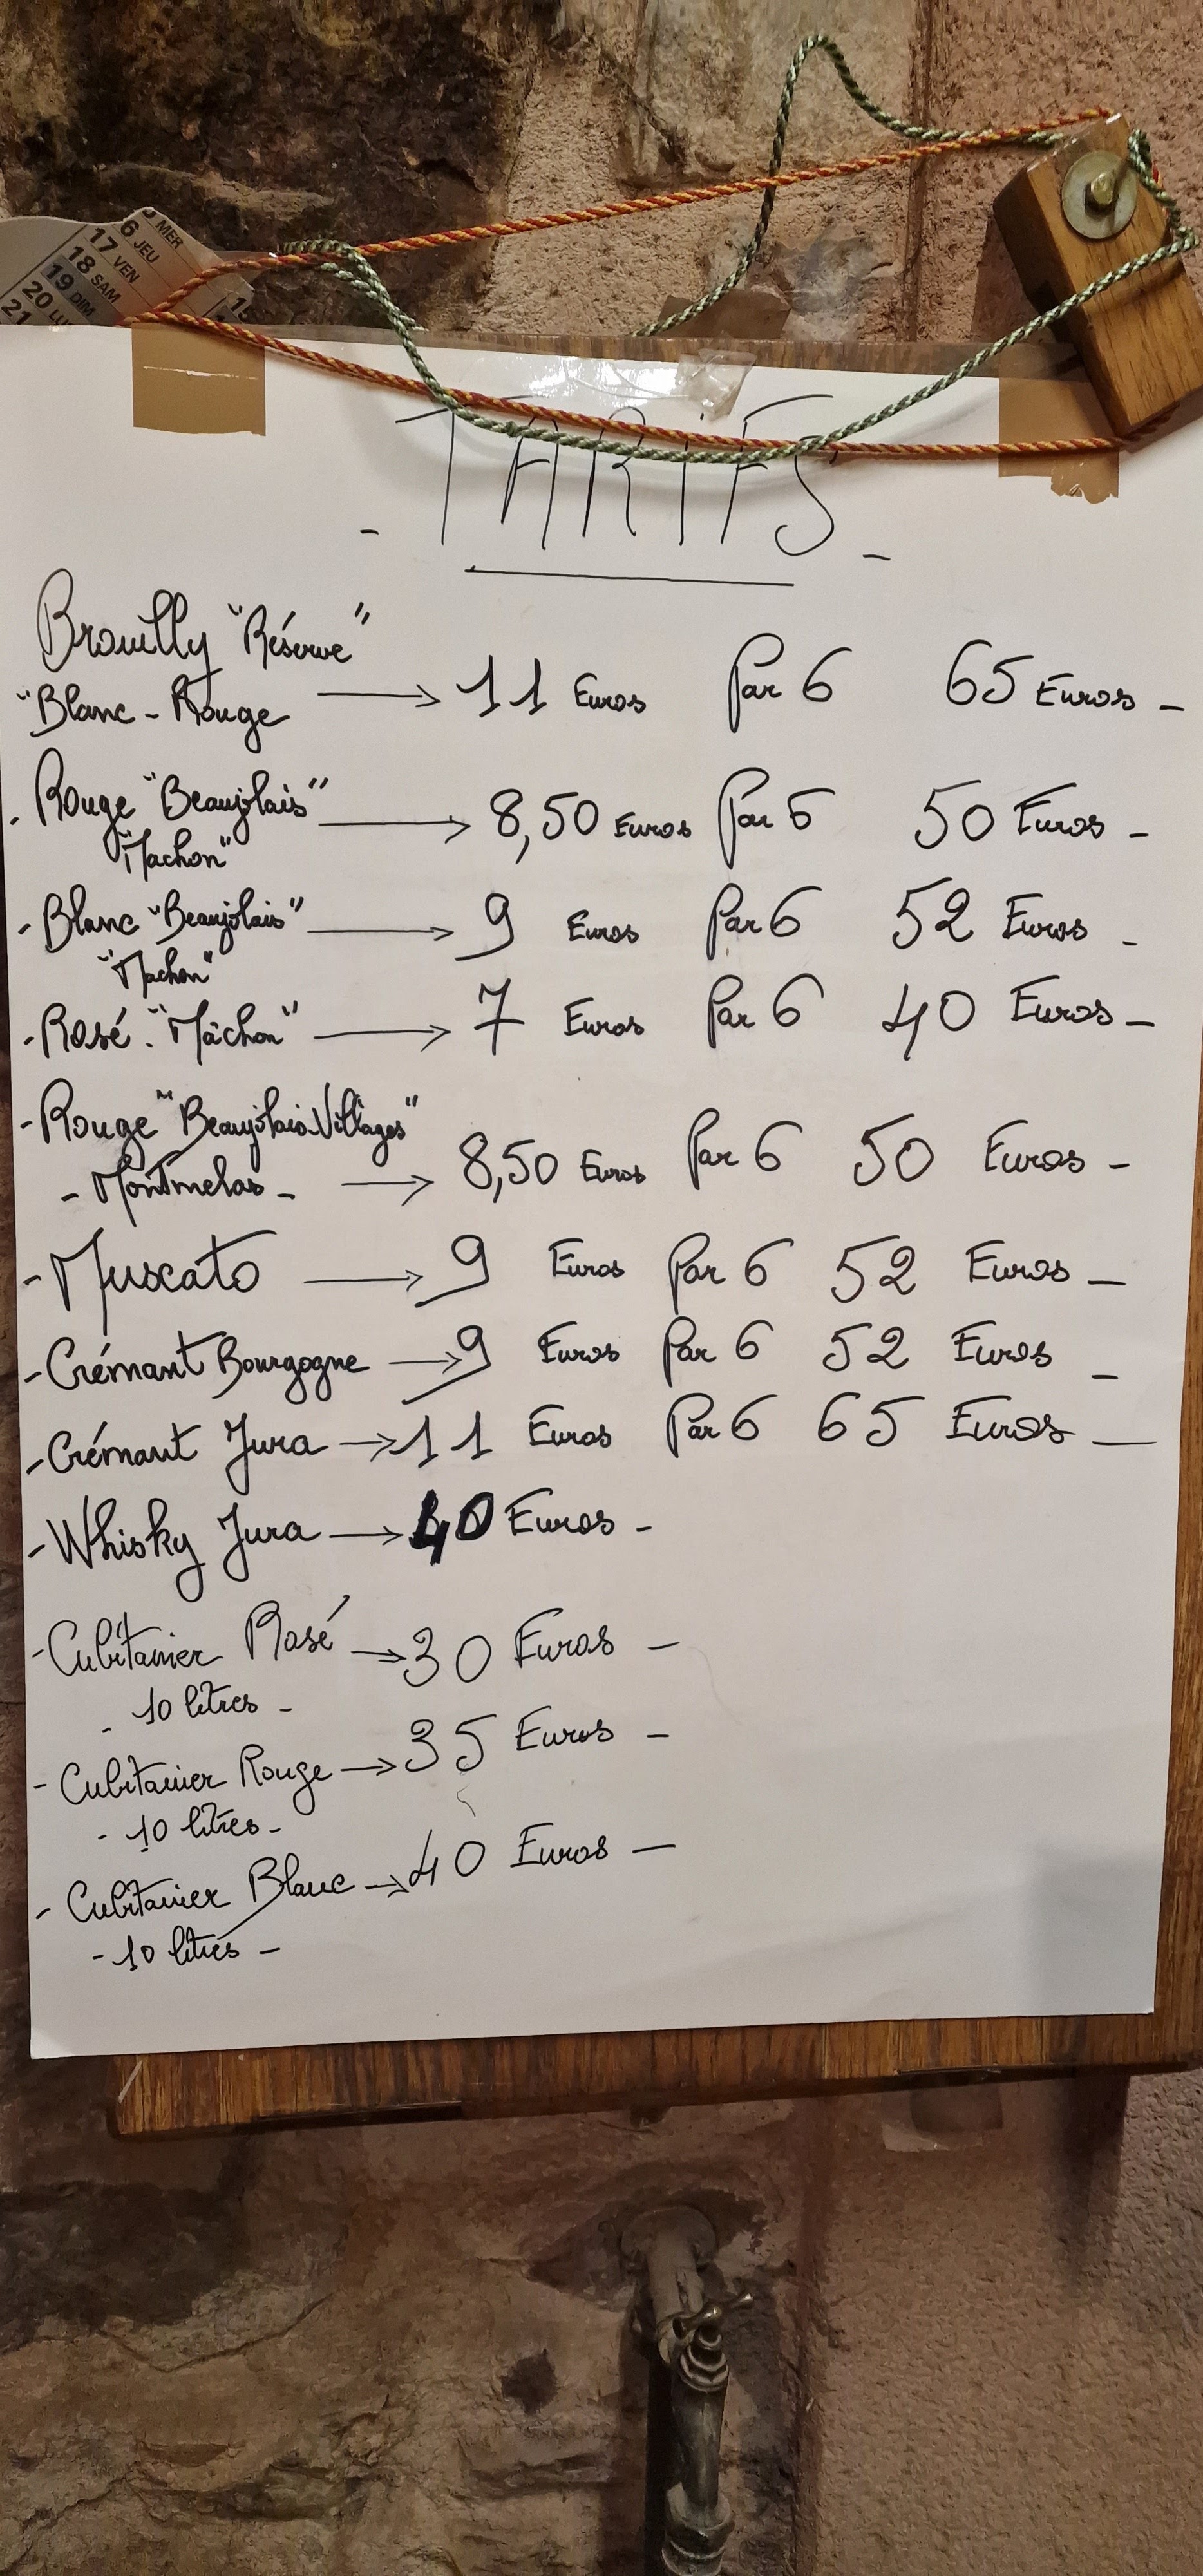 MER
6 JEU
17 VEN
18 SAM
19 DIM
20 LU
21
- TARIFS -
Brouilly "Réserve"
"Blanc - Rouge → 11 Euros Par 6 65 Euros -
- Rouge "Beaujolais" → 8,50 Euros Par 6 50 Euros -
"Machon"
- Blanc "Beaujolais" → 9 Euros Par 6 52 Euros -
"Machon"
- Rosé. "Mâchon" → 7 Euros Par 6 40 Euros -
- Rouge "Beaujolais-Villages"
- Montmelas - → 8,50 Euros Par 6 50 Euros -
- Muscato → 9 Euros Par 6 52 Euros -
- Crémant Bourgogne → 9 Euros Par 6 52 Euros -
- Crémant Jura → 11 Euros Par 6 65 Euros -
- Whisky Jura → 40 Euros -
- Cubitainer Rosé → 30 Euros -
- 10 litres -
- Cubitainer Rouge → 35 Euros -
- 10 litres -
- Cubitainer Blanc → 40 Euros -
- 10 litres -